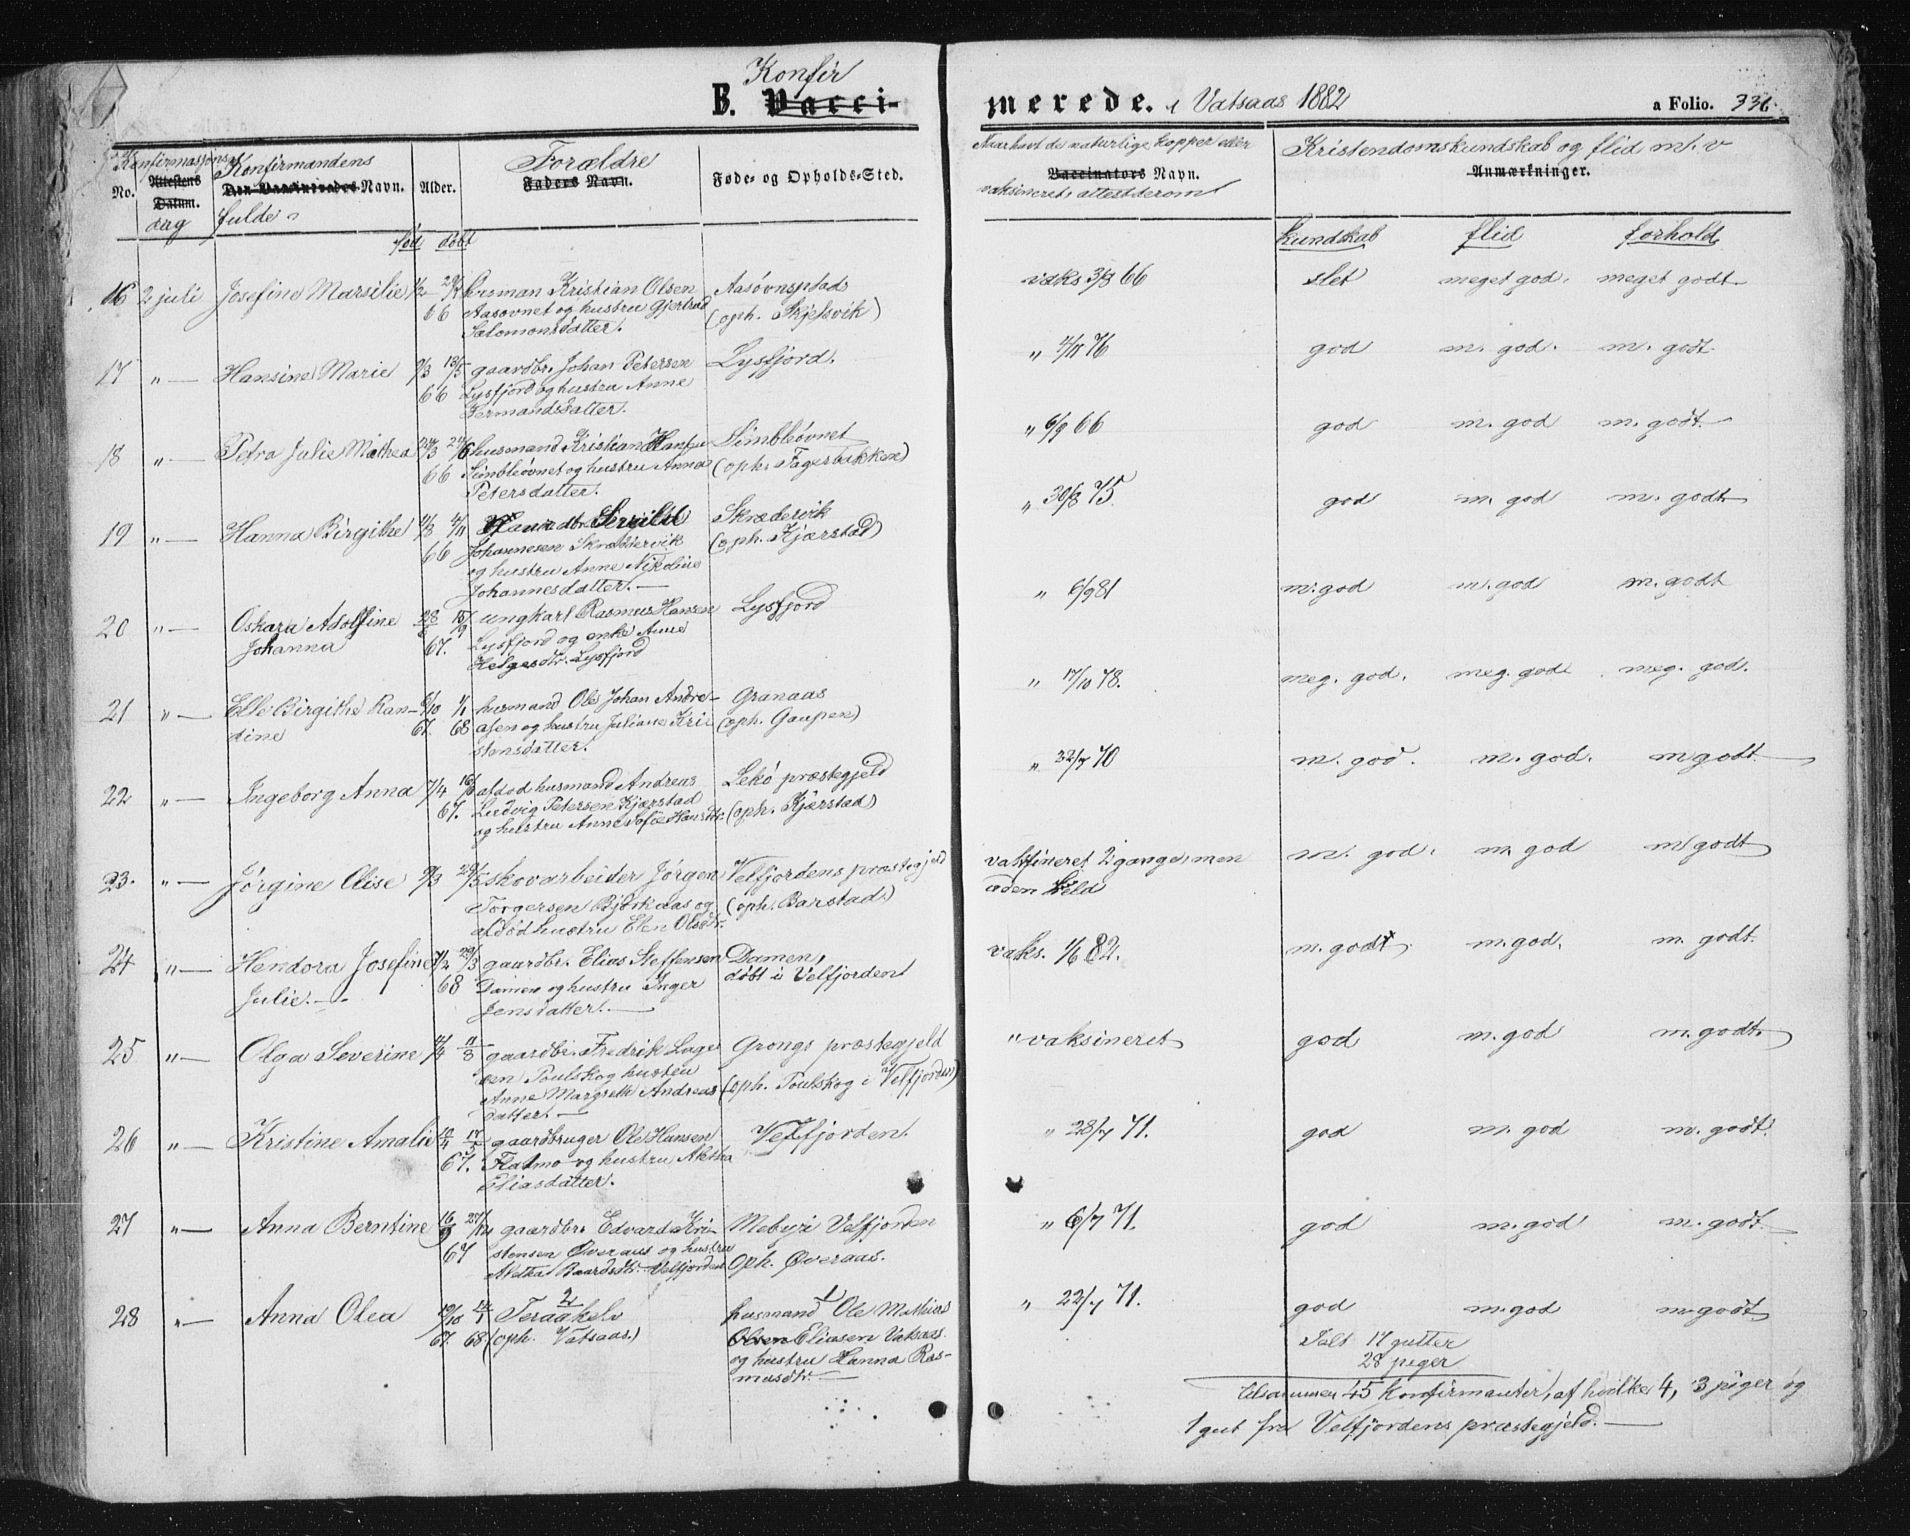 Konfir
B. Vacci-
merede. i Vatsaas 1882
a Folio. 336.
Konfirmasjons
No. Attestens Datum. dag
Konfirmandens
Den Vaccineredes Navn.
fulde
Alder.
Forældre
Faders Navn.
Føde- og Opholds-Sted.
Naar havt de naturlige kopper eller
Vaccinators Navn.
vaksineret, attest derom
Kristendomskundskab og flid m. v
Anmærkninger.
fød døbt
kundskab flid forhold
16 2 juli Josefine Marsilie 66 Kristian Olsen Aasovnet og hustru Gjertrud Salomonsdatter. (oph. Skjelsvik) vaks 3/8 66 slet meget god. meget godt
17 " — Hansine Marie 66 gaardbr. Johan Petersen Lysfjord og hustru Anne Lysfjord. " 76 god m. god. m. godt
18 " — Petra Julie Mathea 66 husmand Kristian Simbleøvnet og hustru Anna Petersdatter. Simbleøvnet (oph. Fagerbakken) " 6/9 66 god m. god m. godt
19 " — Hanna Birgithe 66 Johannesen Skrædervik og hustru Anne Nikoline Johannesdatter. — Skrædervik (oph. Kjærstad) " 30/8 75. god m. god m. godt
20 " — Oskara Adolfine Johanna 67. ungkarl Rasmus Hansen Lysfjord og enke Anne Helgesdtr. Lysfjord Lysfjord " 6/9 81 m. god m. god m. godt
21 " — Elle Birgithe Ran-
dine 67. 68 husmand Ole Johan Andre-
asen og hustru Juliane Kri
stensdatter. Granaas (oph. Gaupen) " 17/10 78. meg. god. meg. god meg. god.
22 " — Ingeborg Anna 7/4 67. afdød husmand Andreas Ludvig Petersen Kjærstad og hustru Anne Sofie Hansdtr. Lekø præstegjeld (oph. Kjærstad) " 22/7 70 m. god. m. god. m godt
23. " — Jørgine Olise skovarbeider Jørgen Torgersen Bjørkaas og afdød hustru Elen Olsdtr. Velfjordens præstegjeld (oph. Barstad.) vaksineret 2 gange, men uden held m. god. m god m godt
24 " — Hendora Josefine Julie. — 68 gaardbr. Elias Steffensen Damen og hustru Inger Jensdatter. — Damen, døbt i Velfjorden vaks. 1/6 82. m. godt. m. god. m. godt.
25 " — Olga Severine gaardbr. Fredrik Lage
sen Toulskog hustru Anne Margreth Andreas
datter. — Grongs præstegjeld (oph. Toulskog i Velfjorden) " vaksineret god m. god m. godt.
26 " — Kristine Amalie 67. gaardbruger Ole Hansen Flatmo og hustru Eliasdatter. Velfjorden. " 28/7 71. god m. god m. godt.
27 " — Anna Berntine 16/9 67 gaardbr. Edvard Kri
stensen Øveraas og hustru Baardsdtr. Velfjorden Mebyi Velfjorden oph. Øveraas. " 6/7 71. god m. god m. godt.
28 " — Anna Olea 19/10 67. 68 2 (oph. Vatsaas.) 1 husmand Ole Mathias Olsen Eliasen Vatsaas. og hustru Hanna Ras-
musdtr. — " 22/7 71. god m. god m. godt
Ialt 17 gutter
28 piger
tilsammen 45 konfirmanter, af hvilke 4, 3 piger og
1 gut fra Velfjordens præstegjeld. —